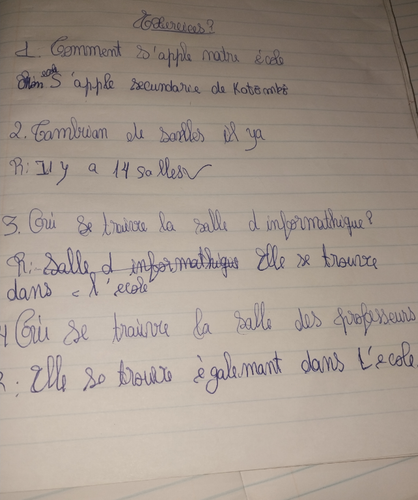 Exercices?
1. Comment s'apple notre école
s'apple secundaree de Katembe
2. Combian de salles il ya
R: Il y a 14 salles
3. Oùi se traivre la salle d informathique?
R: Salle d informathique Elle se trouvre
dans l'ecole
4 Oùi se traivre la salle des professeurs
R: Elle se trouvre ègalemant dans l'ecole